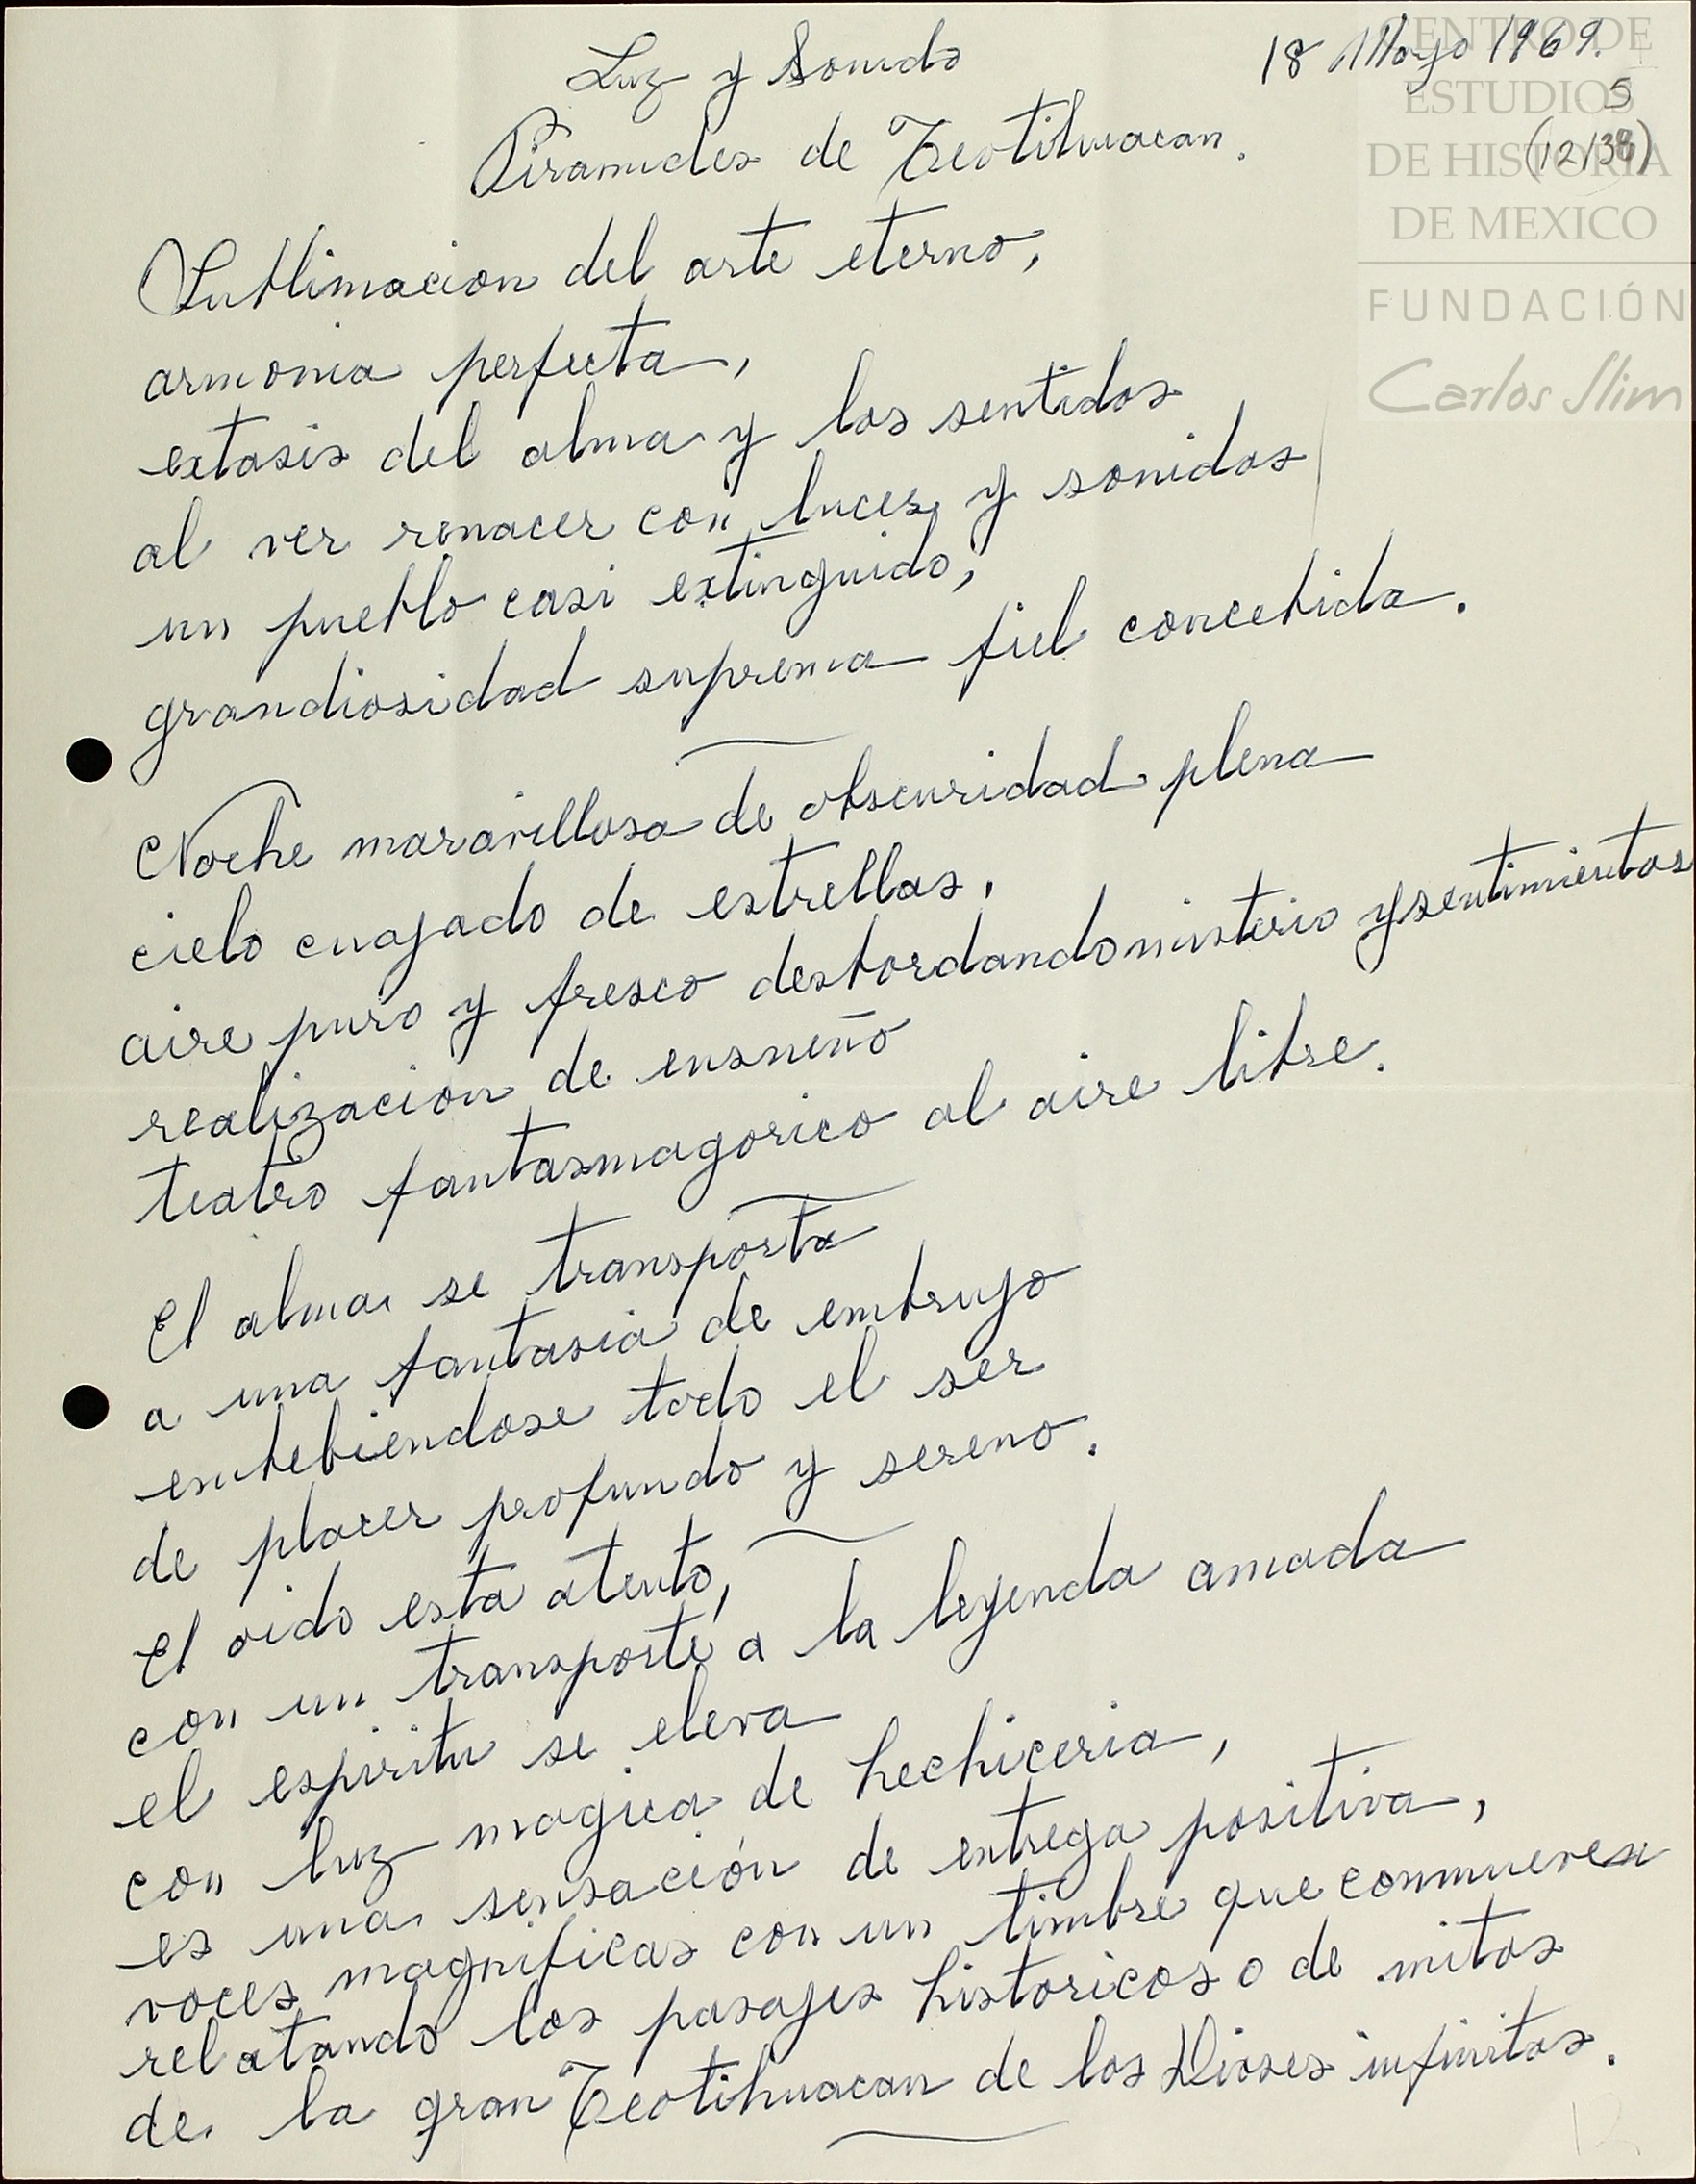 Luz y Sonido
18 Mayo 1969.
5
(12/38)
Piramides de Teotihuacan.
CENTRO DE
ESTUDIOS
DE HISTORIA
DE MEXICO
FUNDACIÓN
Carlos Slim
Sublimacion del arte eterno,
armonia perfecta,
extasis del alma y los sentidos
al ver renacer con luces y sonidos
un pueblo casi extinguido,
grandiosidad suprema fiel concebida.
Noche maravillosa de obscuridad plena
cielo cuajado de estrellas,
aire puro y fresco desbordando misterio y sentimientos
realizacion de ensueño
teatro fantasmagorico al aire libre.
El alma se transporta
a una fantasia de embrujo
embebiendose todo el ser
de placer profundo y sereno.
El oido esta atento,
con un transporte a la leyenda amada
el espiritu se eleva
con luz magica de hechiceria,
es una sensación de entrega positiva,
voces magnificas con un timbre que conmueven
relatando los pasajes historicos o de mitos
de la gran Teotihuacan de los Dioses infinitos.
12